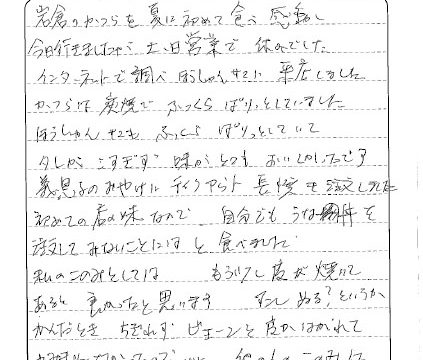 岩倉のかつらを夏に初めて食べ 感動し
今日行きましたが 土、日営業で 休みでした
インターネットで調べ ほうしゃんサンに 来店しました
かつらは 炭焼で ふっくら ぱりっとしていました
ほうしゃんさんも ふっくら ぱりっとしていて
タレがこすぎず 味がとても おいしかったです
義息子のみやげに テイクアウト 長焼も 注文しました
初めての店の味なので 自分でも うな丼を
注文して みないことには と 食べました
私のこのみとしては もう少し皮が焼いて
あると 良かったと思います 少し ぬる?というか
かんだとき ちぎれず ビヨーンと 皮がはがれて